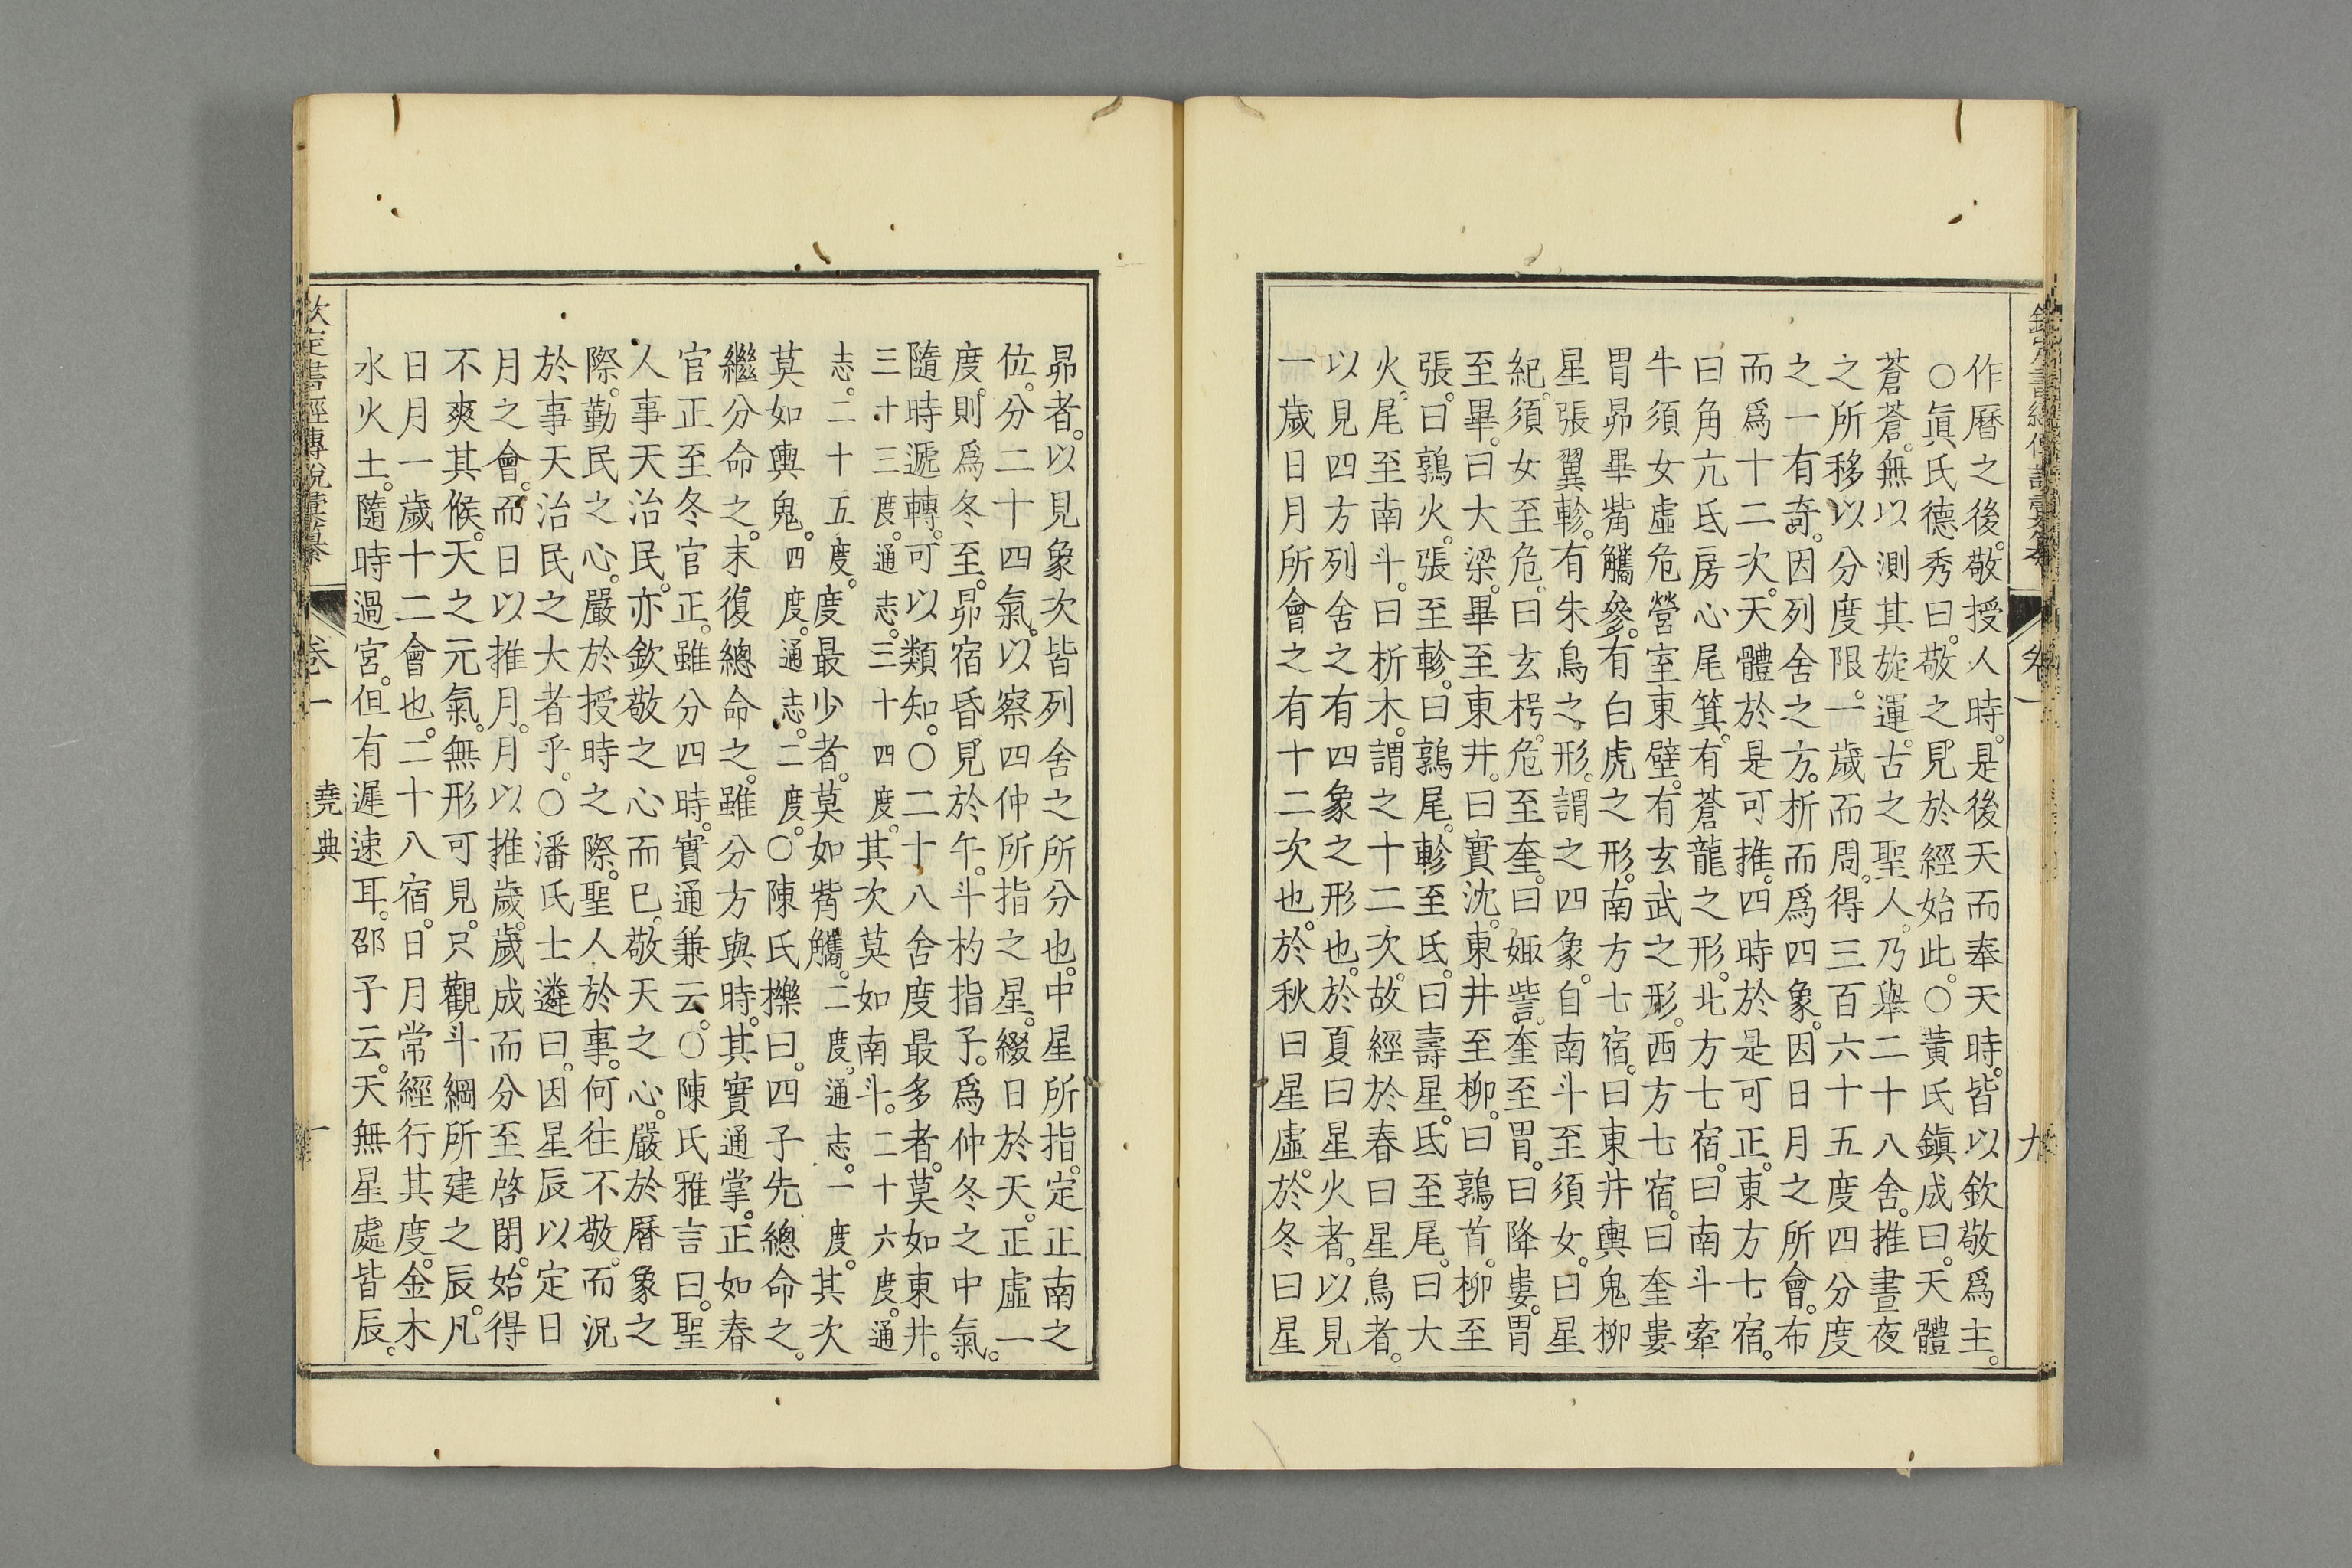 作曆之後。敬授人時。是後天而奉天時。皆以欽敬爲主。
○眞氏德秀曰。敬之見於經始此。○黃氏鎭成曰。天體
蒼蒼。無以測其旋運。古之聖人。乃舉二十八舍。推晝夜
之所移。以分度限。一歲而周。得三百六十五度四分度
之一有奇。因列舍之方。析而爲四象。因日月之所會。布
而爲十二次。天體於是可推。四時於是可正。東方七宿。
曰角亢氐房心尾箕。有蒼龍之形。北方七宿。曰南斗牽
牛須女虛危營室東壁。有玄武之形。西方七宿。曰奎婁
胃昴畢觜觿參。有白虎之形。南方七宿。曰東井輿鬼柳
星張翼軫。有朱鳥之形。謂之四象。自南斗至須女。曰星
紀。須女至危。曰玄枵。危至奎。曰娵訾。奎至胃。曰降婁。胃
至畢。曰大梁。畢至東井。曰實沈。東井至柳。曰鶉首。柳至
張。曰鶉火。張至軫。曰鶉尾。軫至氐。曰壽星。氐至尾。曰大
火。尾至南斗。曰析木。謂之十二次。故經於春曰星鳥者。
以見四方列舍之有四象之形也。於夏曰星火者。以見
一歲日月所會之有十二次也。於秋曰星虛。於冬曰星
卷一
九
昴者。以見象次皆列舍之所分也。中星所指。定正南之
位。分二十四氣。以察四仲所指之星。綴日於天。正虛一
度。則爲冬至。昴宿昏見於午。斗杓指子。爲仲冬之中氣。
隨時遞轉。可以類知。○二十八舍度最多者。莫如東井。
三十三度。通志。三十四度。其次莫如南斗。二十六度。通
志。二十五度。度最少者。莫如觜觿。二度。通志。一度。其次
莫如輿鬼。四度。通志。二度。○陳氏櫟曰。四子先總命之。
繼分命之。末復總命之。雖分方與時。其實通掌。正如春
官正至冬官正。雖分四時。實通兼云。○陳氏雅言曰。聖
人事天治民。亦欽敬之心而已。敬天之心。嚴於曆象之
際。勤民之心。嚴於授時之際。聖人於事。何往不敬。而況
於事天治民之大者乎。○潘氏士遴曰。因星辰以定日
月之會。而日以推月。月以推歲。歲成而分至啓閉。始得
不爽其候。天之元氣。無形可見。只觀斗綱所建之辰。凡
日月一歲十二會也。二十八宿。日月常經行其度。金木
水火土。隨時過宮。但有遲速耳。邵子云。天無星處皆辰。
欽定書經傳說彙纂
卷一
堯典